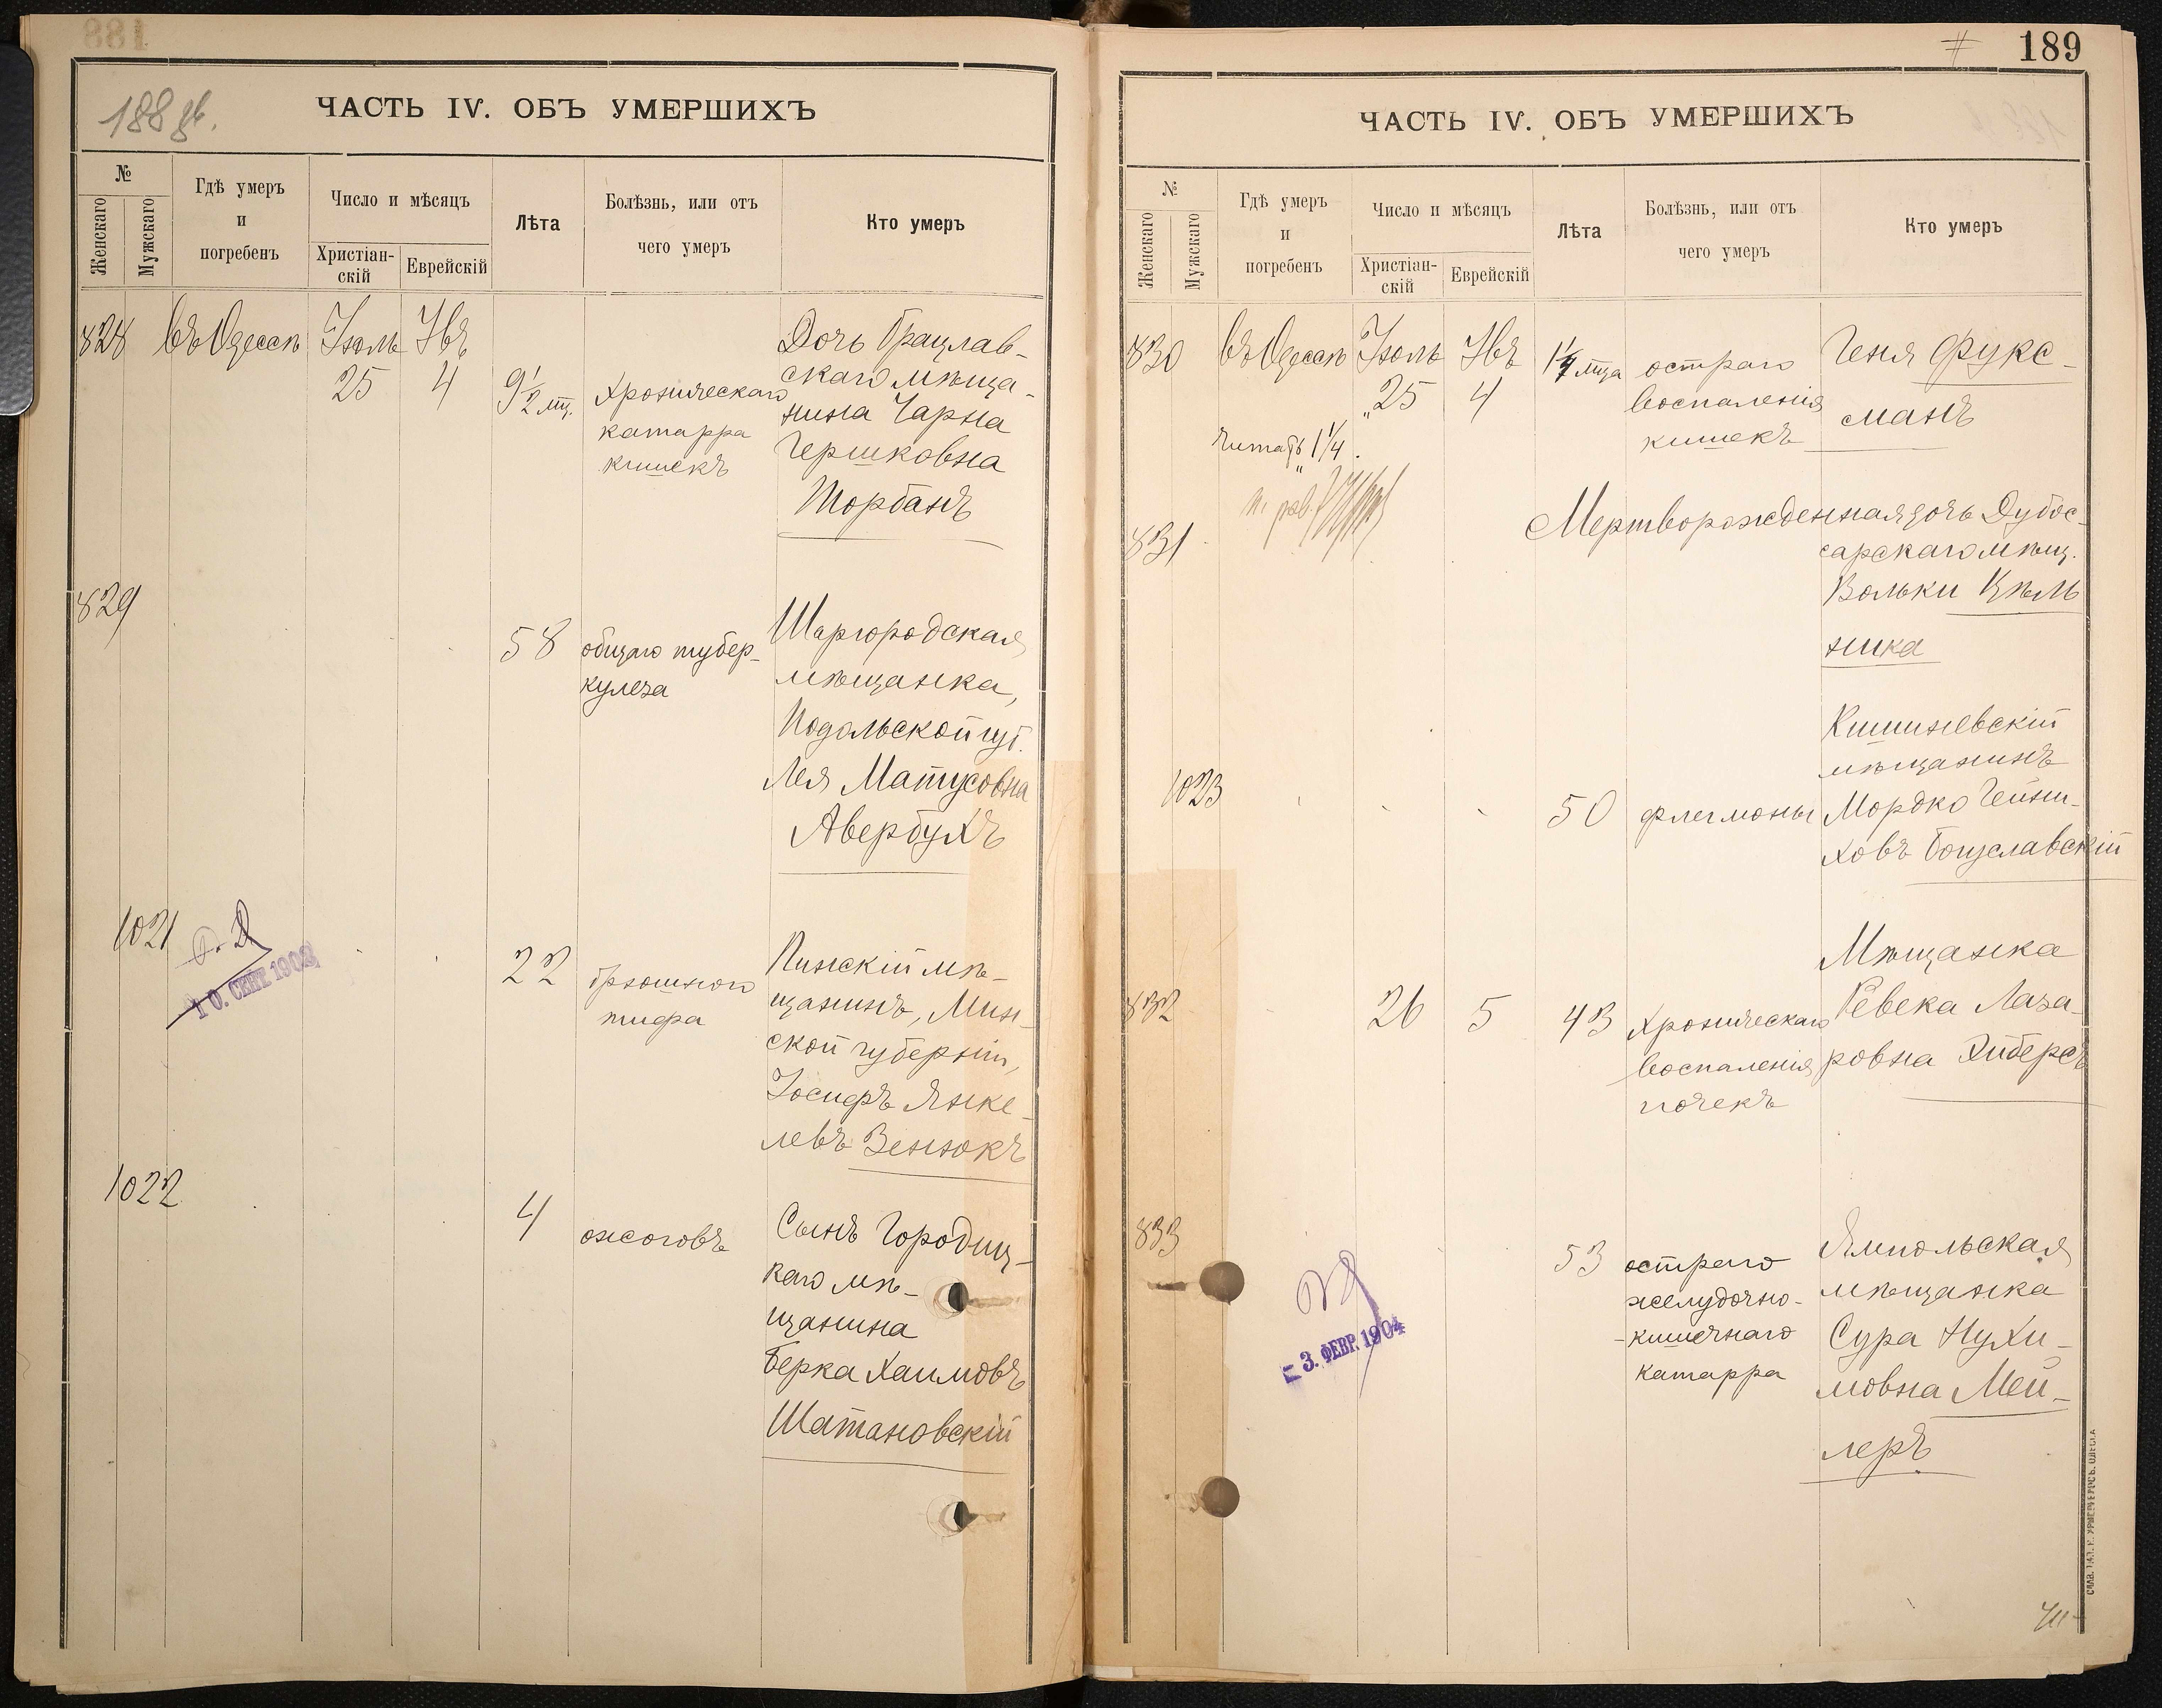 188 об.
ЧАСТЬ IV. ОБЪ УМЕРШИХЪ
№
Женскаго
Мужскаго
Гдѣ умеръ
и
погребенъ
Число и мѣсяцъ
Христіан-
скій
Еврейскій
Лѣта
Болѣзнь, или отъ
чего умеръ
Кто умеръ
828 въ Одессѣ Іюль
25 4 9½ мц.
Хроническаго
катарра
кишекъ
Дочь Брацлав-
скаго мѣща-
нина Чарна
Гершковна
Торбанъ
829
58 общаго тубер-
кулеза
Шаргородская
мѣщанка,
Подольской губ.
Лея Матусовна
Авербухъ
1021
10. СЕНТ 1902
22 брюшного
тифа
Пинскій мѣ-
щанинъ, Мин-
ской губерніи,
Іосифъ Янке-
левъ Зенюкъ
1022
4 ожоговъ
Сынъ Городищ-
каго мѣ-
щанина
Берка Хаимовъ
Шатановскій
189
ЧАСТЬ IV. ОБЪ УМЕРШИХЪ
№
Женскаго
Мужскаго
Гдѣ умеръ
и
погребенъ
Число и мѣсяцъ
Христіан-
скій
Еврейскій
Лѣта
Болѣзнь, или отъ
чего умеръ
Кто умеръ
830 въ Одессѣ Іюль
25 4
остраго
воспаленія
кишекъ
Геня Фукс-
манъ
читать 1¼.
831
Мертворожденная дочь Дубос-
сарскаго мѣщ.
Вольки Цѣль
ника
1023
50 флегмоны
Кишиневскій
мѣщанинъ
Мордко Гейни-
ховъ Богуславскій
832 26 5 43
Хроническаго
воспаленія
почекъ
Мѣщанка
Ревека Лаза-
ровна Хиберсъ
833
3. ФЕВР. 1904
53 остраго
желудочно-
-кишечнаго
катарра
Ямпольская
мѣщанка
Сура Нухи-
мовна Мей-
леръ